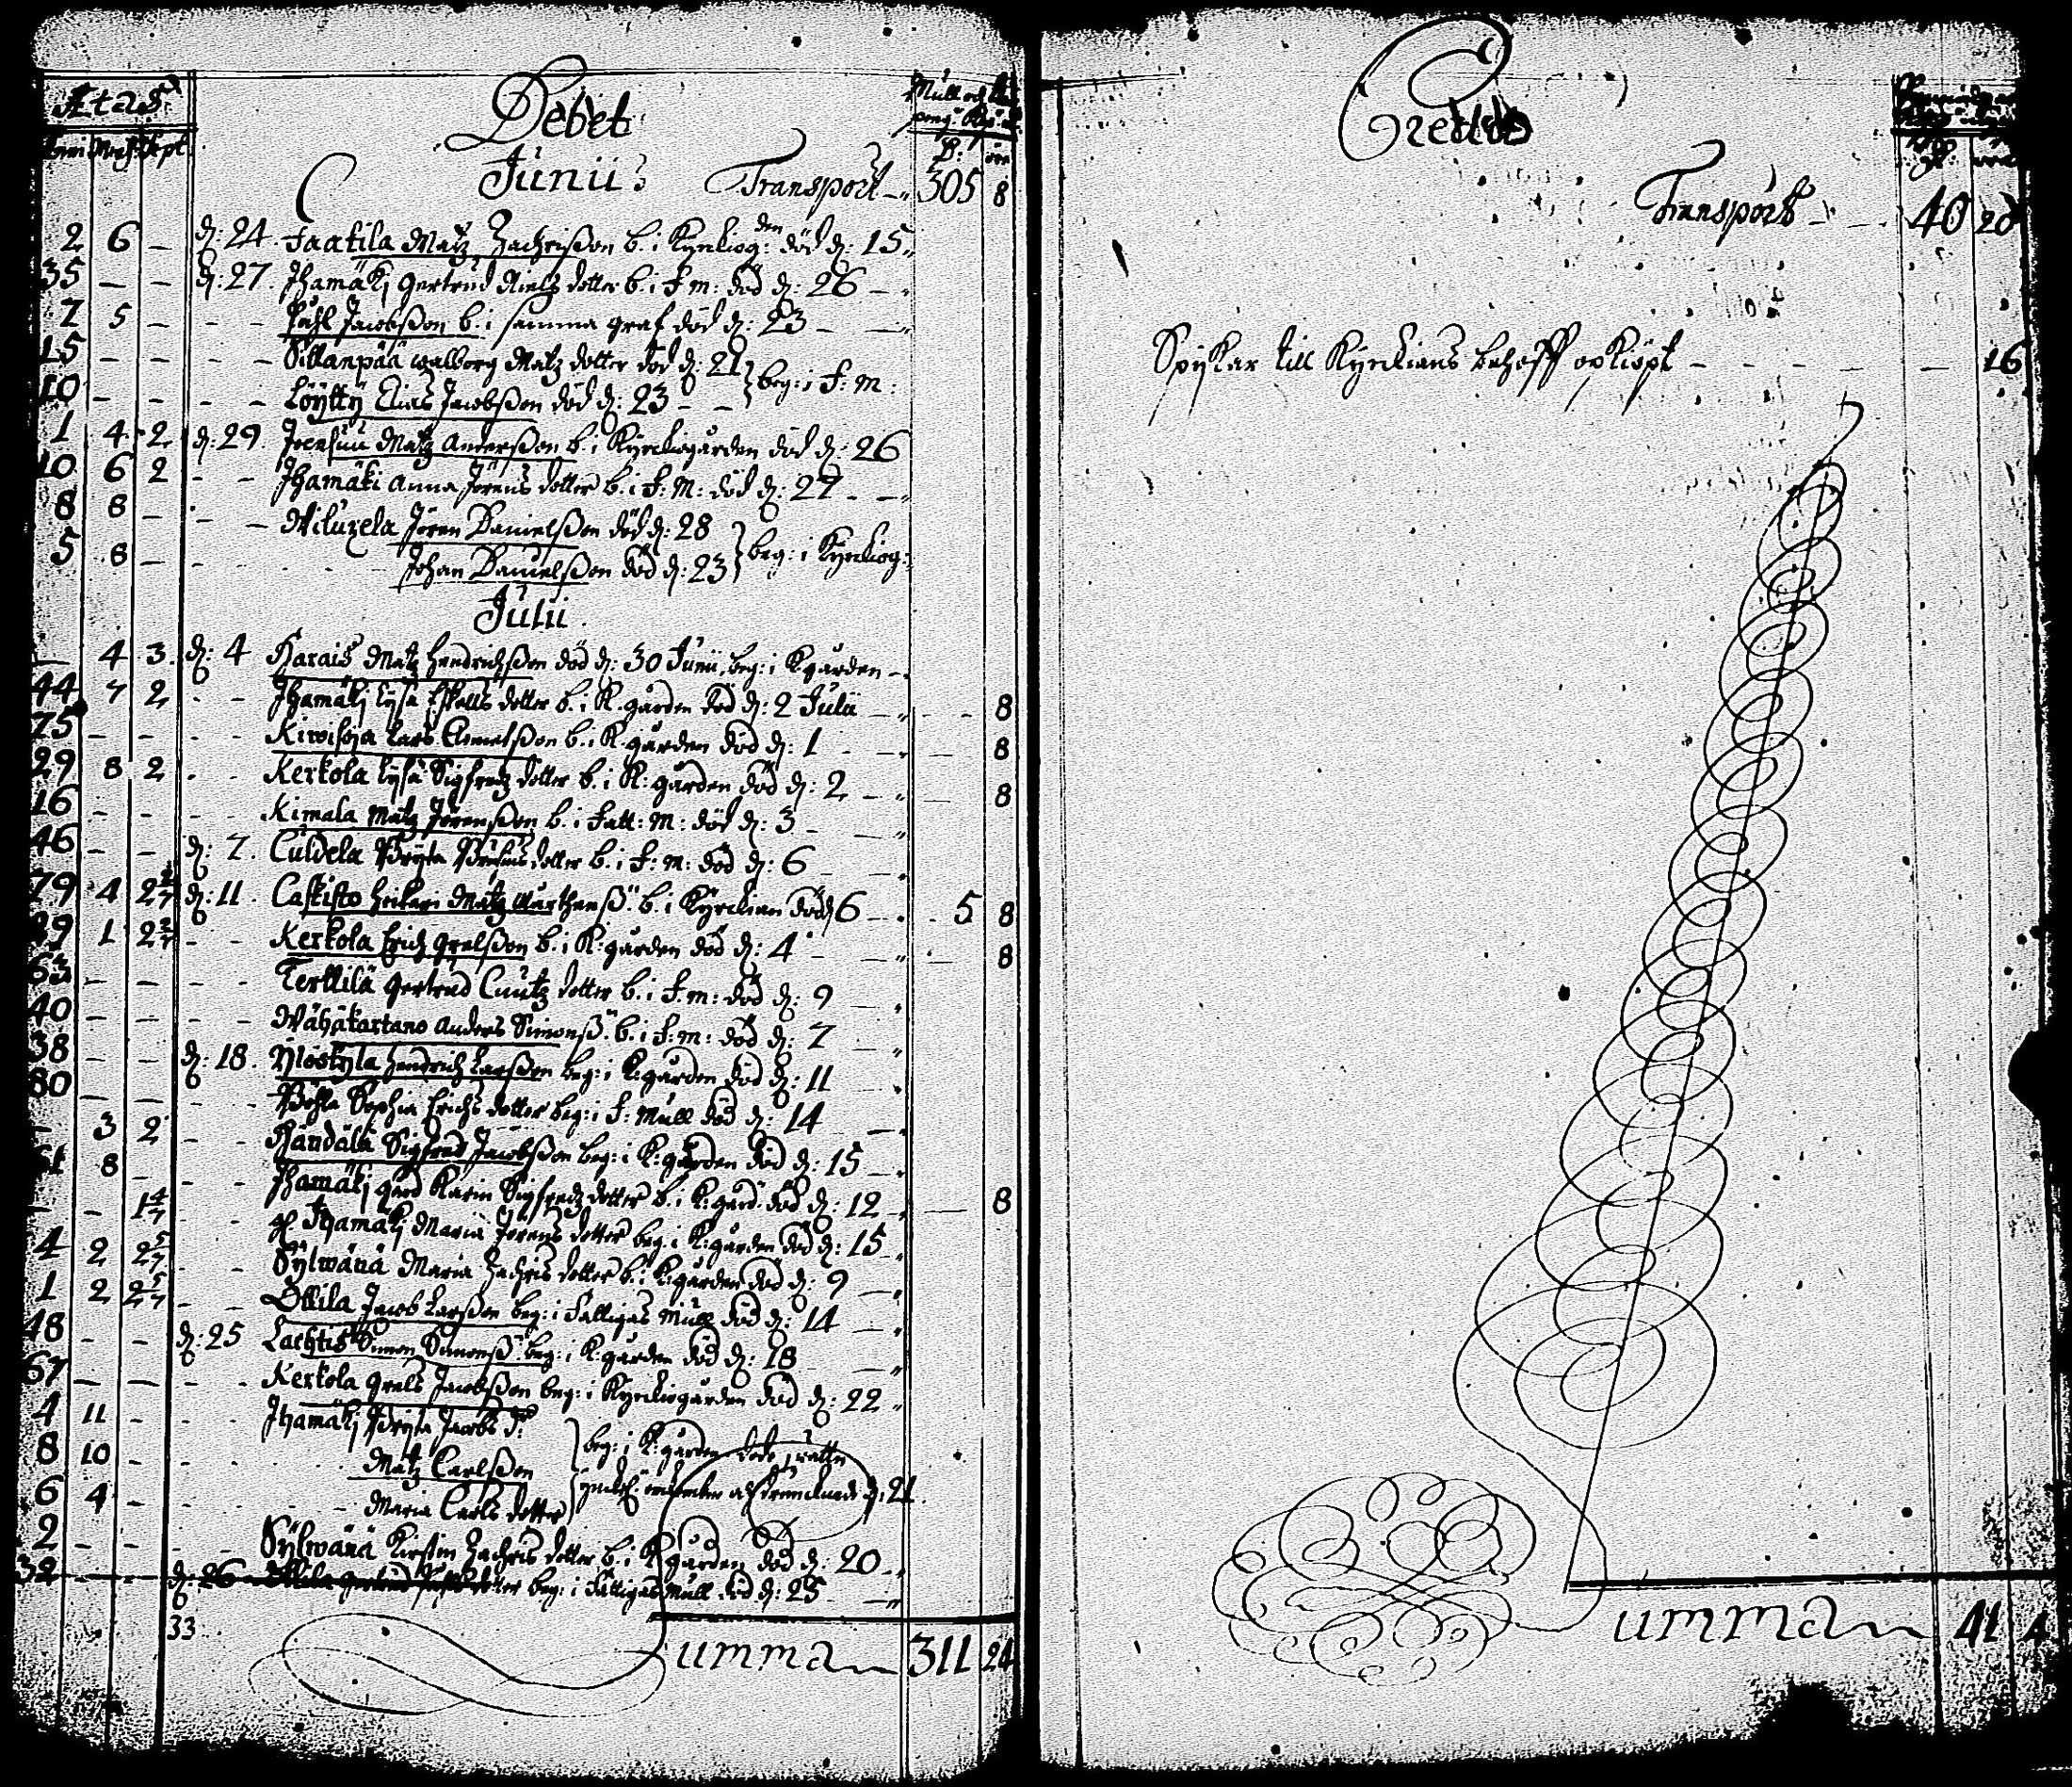 Ætas
Debet
Mull och
peng:
Junii
Transport 305 8
2 6 — d: 24. Faatila Matz Zachrißon b. i Kyrkiog: den död d: 15
35 — — d: 27. Ihamäkj Gertrud Nielz dotter b. i F. m: död d: 26
7 5 — Påhl Jacobßon b. i samma graf död d: 23
15 — — Sillanpää Walborg Matz dotter död d: 21
10 — — Löytty Elias Jacobßon död d: 23 beg: i F: m:
1 4 2 d: 29. Joensuu Matz Anderßon b. i Kyrkiogården död d: 26
10 6 2 Ihamäki Anna Jörens dotter b. i F: M: död d: 27
8 8 — Wiluzela Jören Danielßon död d: 28
5 8 — Johan Danielßon död d: 23 beg: i Kyrkiog:
Julii
— 4 3 d: 4 Harais Matz Hendrichßon död d: 30 Junii, beg: i Kgården
44 7 2 Ihamäkj Lysa Eskells dotter b. i K. gården död d: 2 Julii 8
75 — — Kiwisoja Lars Clemetßon b. i K. gården död d: 1 8
29 8 2 Kerkola Lysa Sigfredz dotter b. i K: gården död d: 2 8
16 — — Kimala Matz Jörenßon b. i Fatt: M: död d: 3
46 — — d: 7. Culdela Bryta dotter b. i F: m: död d: 6
79 4 d: 11. Caskisto Heikari Matz Marthenß: b. i Kyrckian död d 6 5 8
39 1 Kerkola Erich Grelsßon b. i K: gården död d: 4 8
63 — — Terttilä Gertrud Cnutz dotter b. i F. m: död d: 9
40 — — Wähäkartano Anders Simonß: b. i F: m: död d: 7
38 — — d: 18. Ylöstyla Hendrich Larßon beg: i K: gården död d: 11
80 — — Sophia Erichs dotter beg: i F: Mull död d: 14
— 3 2 Sigfred Jacobßon beg: i K: gården död d: 15
8 — Ihamäkj Karin Sigfredz dotter b. i K: gård: död d: 12 8
Ihamäkj Maria Jörens dotter beg. i K: gården död d: 15
4 2 Sylwänä Maria Zachris dotter b. i K: gården död d: 9
1 2 Ollila Jacob Larßon beg: i Fattigas Mull död d: 14
48 — — d: 25 Lachtis Simon Simonß: beg: i K: gården död d: 18
67 — — Kerkola Grels Jacobßon beg: i Kyrckiogården död d: 22
4 11 Ihamäkj Bryta Jacobs d:
8 10 Matz Carlßon beg: i K: gården
6 4 Maria Carls dotter d: 21
2 — — Sylwänä Kirstin Zachris dotter b. i K gården död d: 20
32 — — d: 26 dotter beg: i Fattigas Mull död d: 25
33
Summa 311 24
Credit
Transport 40 20
Spykar till Kyrckians behoff opkiöpt 16
Summa 41 4